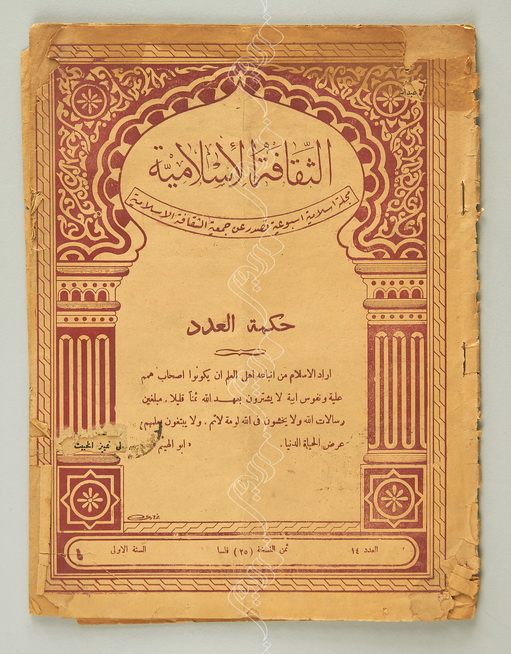 الثقافة الإسلامية
مجلة اسلامية اسبوعية تصدر عن جمعية الثقافة الاسلامية
حكمة العدد
اراد الاسلام من اتباعه اهل العلم ان يكونوا اصحاب همم
علية ونفوس ابية لا يشترون بعهد الله ثمناً قليلا، مبلغين
رسالات الله ولا يخشون في الله لومة لائم، ولا يبتغون بعلمهم
عرض الحياة الدنيا. « ابو الهيثم
العدد ١٤
ثمن النسخة (٢٥) فلسا
السنة الاولى